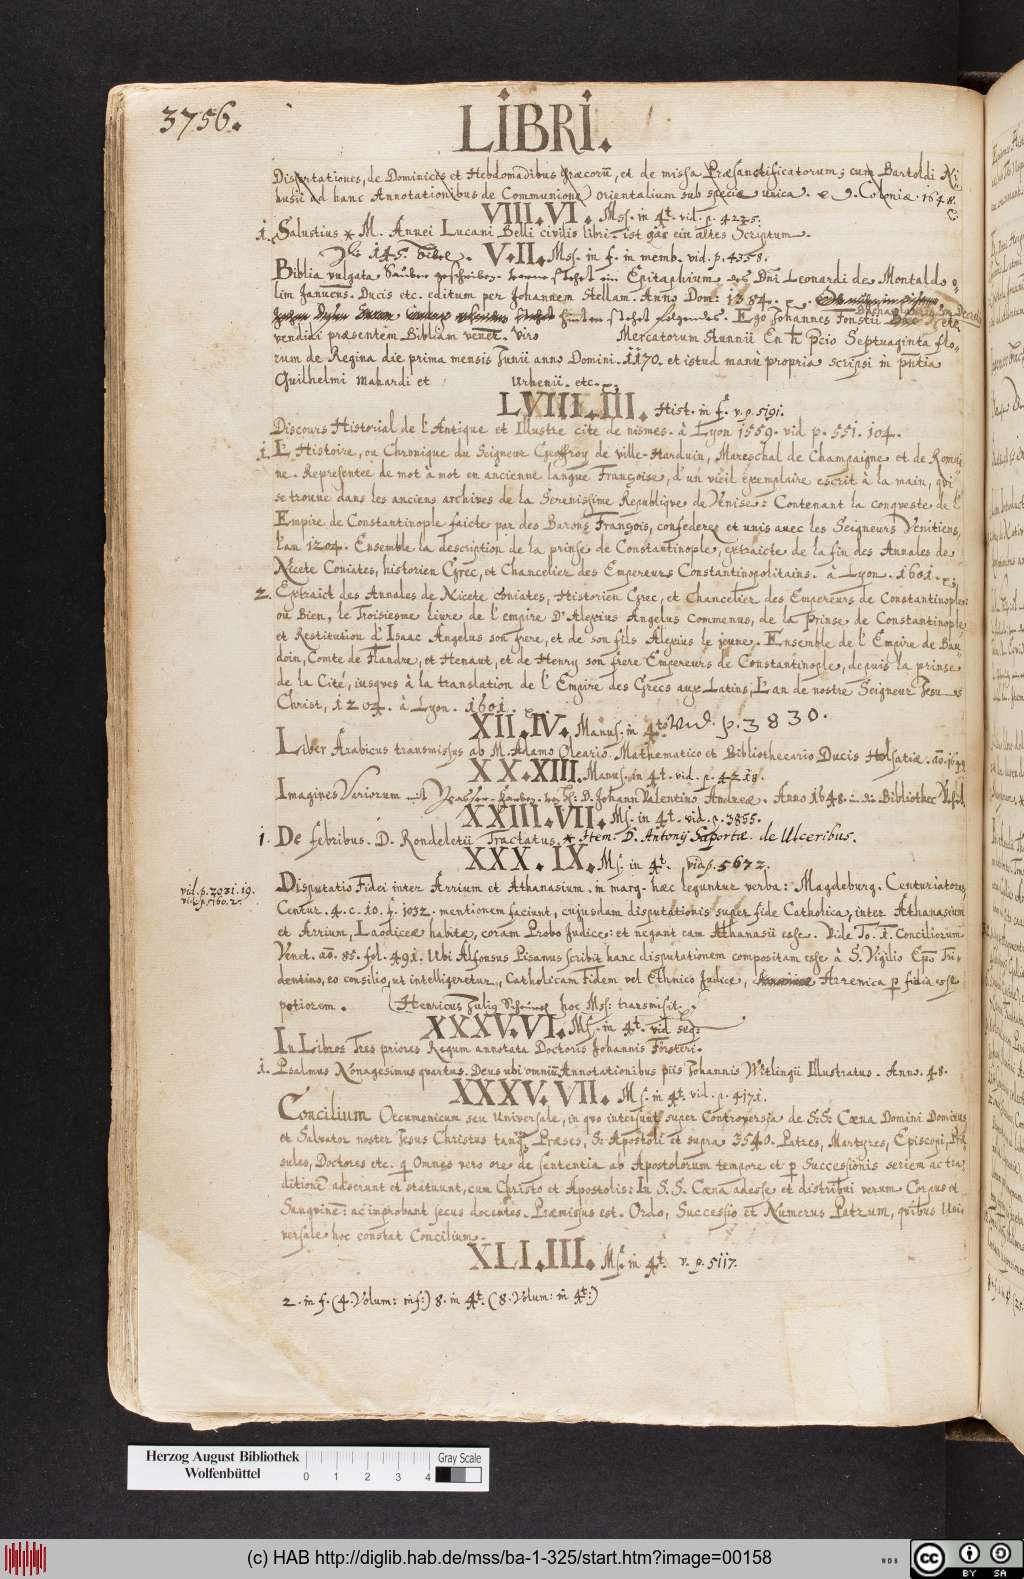 3756.
LIBRI.
Dissertationes, de Dominicis et Hebdomadibus Græcorū, et de missa Præsanctificatorum; cum Bartoldi Ni-
husii ad hanc Annotationibus de Communione Orientalium sub specie unica. Coloniæ. 1648.
VIII. VI. Mss. in 4t. vid. p. 4225.
1. Salustius * M. Annei Lucani Belli civilis libri. ist gar ein altes Scriptum.
Die 145. Bibel. V. II. Mss. in f. in memb. vid. p. 4358.
Biblia vulgata Sauber geschrieben. vorne stehet ein Epitaphium des Dni Leonardi de Montaldo o-
lim Januens. Ducis etc. editum per Johannem Stellam. Anno Dom: 1384.
hinten stehet folgendes. Ego Johannes Fonstii etc.
vendidi præsentem Bibliam venet. Viro Mercatorum Stunnii En pcio Septuaginta flo-
rum de Regina die prima mensis Junii anno Domini. 1170. et istud manu propria scripsi in pntia
Guilhelmi Mahardi et Urhenii. etc.
LVIII. III. Hist. in f. v. p. 5191.
Discours Historial de l'Antique et Illustre cite de nismes. à Lyon 1559. vid p. 551. 104.
1. L'Histoire, ou Chronique du Seigneur Geoffroy de ville-Harduin, Mareschal de Champaigne et de Romai-
ne. Representee de mot à mot en ancienne langue Françoise, d'un vieil exemplaire escrit à la main, qui
se trouue dans les anciens archives de la Serenissime Republique de Venise: Contenant la conqueste de l'
Empire de Constantinople faicte par des Barons François, confederez et unis auec les Seigneurs Venitiens,
l'an 1204. Ensemble la description de la prinse de Constantinople, extraicte de la fin des Annales de
Nicete Coniates, historien Grec, et Chancelier des Empereurs Constantinopolitains. à Lyon. 1601.
2. Extraict des Annales de Nicete Coniates, Historien Grec, et Chancelier des Empereurs de Constantinople:
ou Bien, le Troisiesme livre de l'empire D'Alexius Angelus Commenus, de la Prinse de Constantinople,
et Restitution d'Isaac Angelus son frere, et de son fils Alexius le jeune. Ensemble de l'Empire de Bau-
doin, Comte de Flandre, et Henaut, et de Henry son frere Empereurs de Constantinople, depuis la prinse
de la Cité, iusques à la translation de l'Empire des Grecs aux Latins, L'an de nostre Seigneur Jesus
Christ, 1204. à Lyon. 1601.
XII. IV. Manus. in 4to Vid. p. 3830.
Liber Arabicus transmissus ab M. Adamo Oleario Mathematico et Bibliothecario Ducis Holsatiæ. aō. 1649
XX. XIII. Manus. in 4t. vid. p. 4218.
Imagines Variorum mit Wasser-farben von H: D. Johann Valentino Andreæ. Anno 1648. in die Bibliothec
XXIII. VII. Ms. in 4t. vid. p. 3855.
1. De febribus. D. Rondeletii Tractatus. * Item. D. Antonij Saportæ de Ulceribus.
XXX. IX. Ms. in 4t. vid. p. 5672.
vid. p. 2031. 19.
vid. p. 5160. 2.
Disputatio Fidei inter Arrium et Athanasium. in marg. hæc leguntur verba: Magdeburg. Centuriatores,
Centur. 4. c. 10. f. 1032. mentionem faciunt, cujusdam disputationis super fide Catholica, inter Athanasium
et Arrium, Laodiceæ habitæ, coram Probo Judice: et negant eam Athanasii esse. Vide To. 1. Conciliorum
Venet. aō. 85. fol. 491. Ubi Alfonsus Pisanus scribit hanc disputationem compositam esse à S. Vigilio Epō Tri-
dentino, eo consilio, ut intelligeretur, Catholicam Fidem vel Ethnico Judice, Arremica p fidia esse
potiorem. (Henricus Julig Scheurl hoc Mss: transmisit.
XXXV. VI. Ms. in 4t. vid seq:
In Libros Tres priores Regum annotata Doctoris Johannis Försteri.
1. Psalmus Nonagesimus quartus. Deus ubi omniū Annotationibus piis Johannis Witlingii Illustratus. Anno. 48.
XXXV. VII. Ms. in 4t. vid. p. 4171.
Concilium Oecumenicum seu Universale, in quo intersunt super Controversia de S: S: Cœna Domini Dominus
et Salvator noster Jesus Christus tanq. Præses, St Apostoli et supra 3540. Patres, Martyres, Episcopi, Præ-
sules, Doctores etc. q Omnes vero ore de sententia ab Apostolorum tempore et p Successionis seriem ac tra-
ditionē adserunt et statuunt, cum Christo et Apostolis: In S. S. Cœna adesse et distribui verum Corpus et
Sanguinē: ac improbant secus docentes. Præmissus est. Ordo, Successio et Numerus Patrum, quibus Uni-
versale hoc constat Concilium.
XLI. III. Ms. in 4t. v. p. 5117.
2. in f. (4. Volum: in f:) 8. in 4t. (8. Volum: in 4t:)
Herzog August Bibliothek
Wolfenbüttel
0 1 2 3 4
Gray Scale
(c) HAB http://diglib.hab.de/mss/ba-1-325/start.htm?image=00158
WDB
CC BY SA